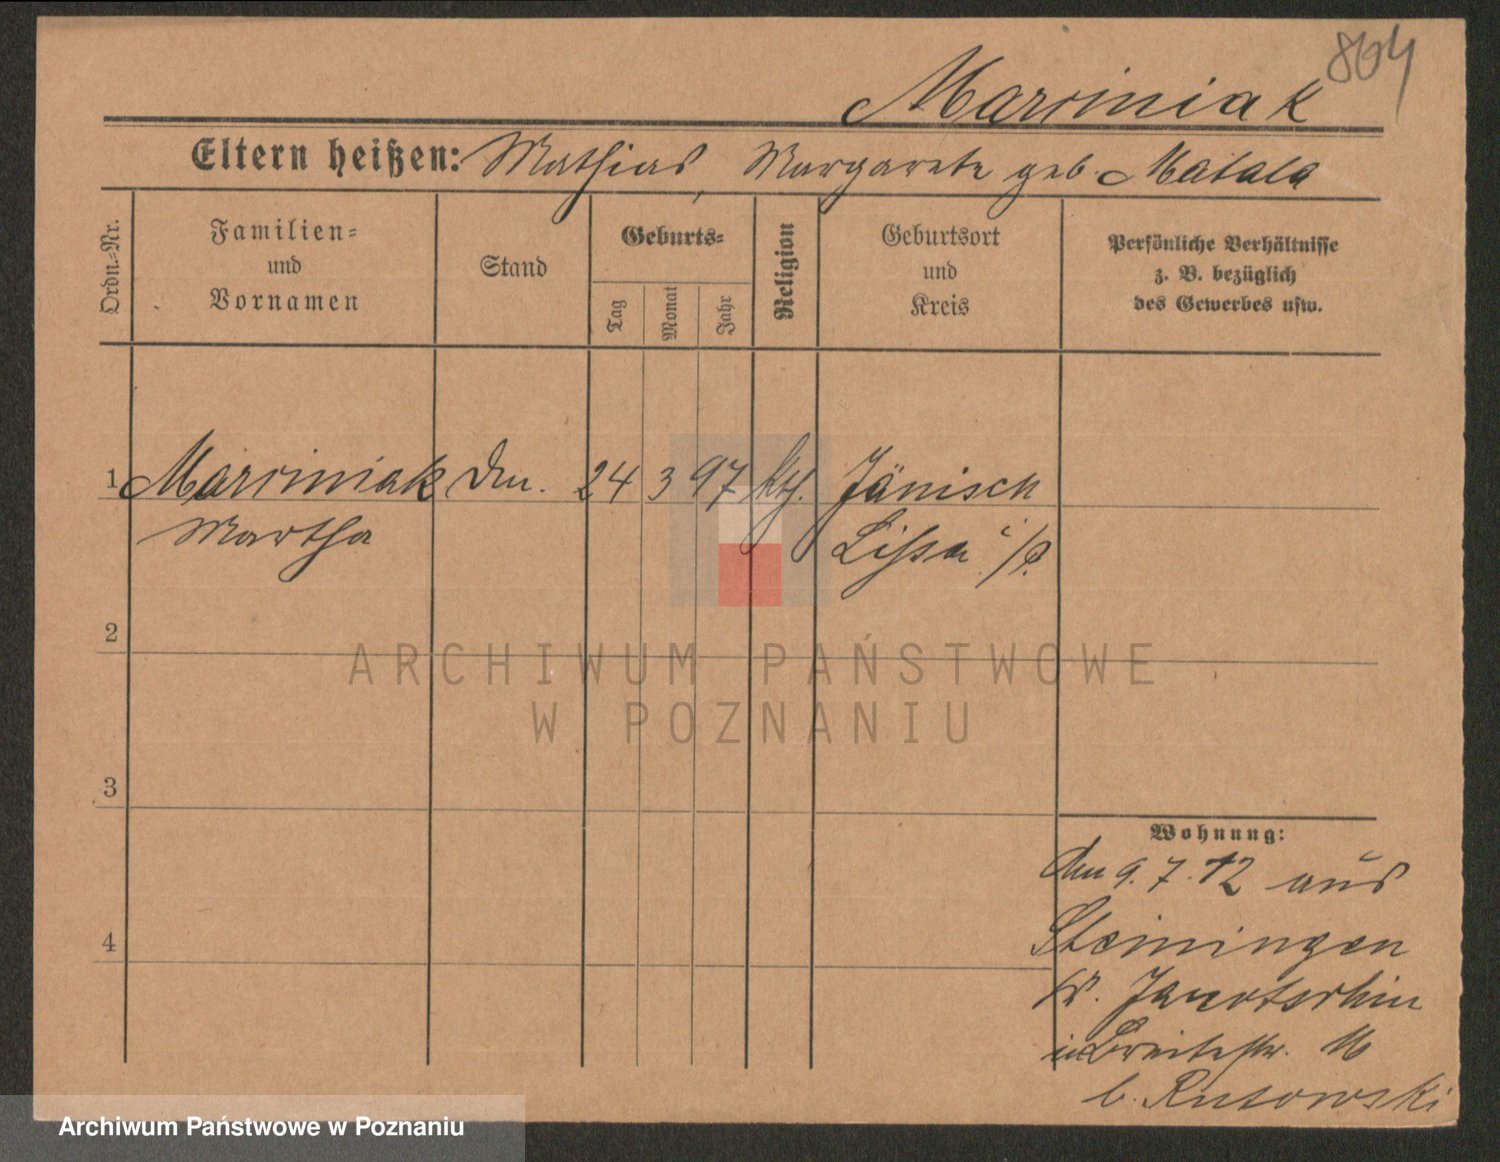 804
Marciniak
Eltern heißen: Mathias, Margarete geb. Matala
Ordn.-Nr.
Familien-
und
Vornamen
Stand
Geburts-
Tag
Monat
Jahr
Religion
Geburtsort
und
Kreis
Persönliche Verhältnisse
z. B. bezüglich
des Gewerbes usw.
1 Marciniak 24 3 97 kth. Jänisch
Martha Lissa i/P.
2
ARCHIWUM PAŃSTWOWE
W POZNANIU
3
Wohnung:
9. 7. 12 aus
4
Steiningen
Kr.
in Breitestr.
b. Rutowski
Archiwum Państwowe w Poznaniu